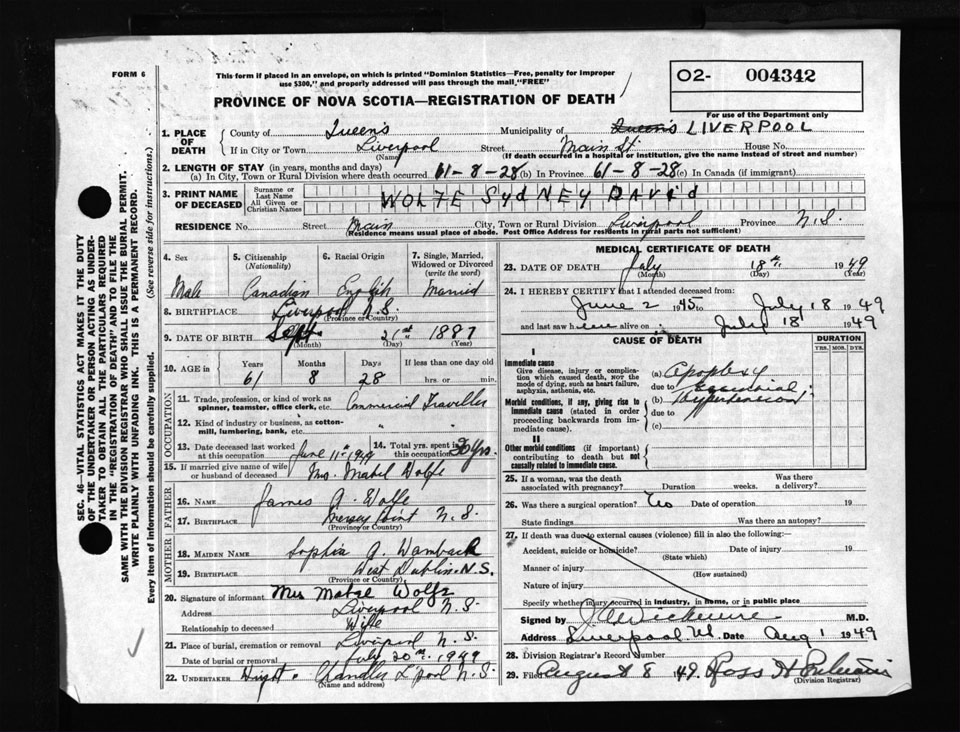 FORM 6
This form if placed in an envelope, on which is printed "Dominion Statistics—Free, penalty for improper
use $300," and properly addressed will pass through the mail "FREE"
O2- 004342
For use of the Department only
PROVINCE OF NOVA SCOTIA—REGISTRATION OF DEATH
1. PLACE OF DEATH
County of Queens Municipality of Queens LIVERPOOL
If in City or Town Liverpool Street Main St. House No.
(Name) (If death occurred in a hospital or institution, give the name instead of street and number)
2. LENGTH OF STAY (in years, months and days)
(a) In City, Town or Rural Division where death occurred 61-8-28 (b) In Province 61-8-28 (c) In Canada (if immigrant)
3. PRINT NAME OF DECEASED
Surname or Last Name
All Given or Christian Names
WOLFE SYDNEY DAVID
RESIDENCE No. Street Main City, Town or Rural Division Liverpool Province N.S.
(Residence means usual place of abode. Post Office Address for residents in rural parts not sufficient)
4. Sex
Male
5. Citizenship (Nationality)
Canadian
6. Racial Origin
English
7. Single, Married, Widowed or Divorced (write the word)
Married
8. BIRTHPLACE Liverpool N.S.
(Province or Country)
9. DATE OF BIRTH Sept 21st 1887
(Month) (Day) (Year)
10. AGE in Years Months Days If less than one day old
61 8 28 hrs. or min.
OCCUPATION
11. Trade, profession, or kind of work as spinner, teamster, office clerk, etc. Commercial Traveller
12. Kind of industry or business, as cotton-mill, lumbering, bank, etc. " "
13. Date deceased last worked at this occupation June 11th 1949
14. Total yrs. spent in this occupation 30 yrs.
15. If married give name of wife or husband of deceased Mrs. Mabel Wolfe
FATHER
16. NAME James A. Wolfe
17. BIRTHPLACE Mersey Point N.S.
(Province or Country)
MOTHER
18. MAIDEN NAME Sophia A. Wamback
19. BIRTHPLACE West Dublin N.S.
(Province or Country)
20. Signature of informant Mrs Mabel Wolfe
Address Liverpool N.S.
Relationship to deceased Wife
21. Place of burial, cremation or removal Liverpool N.S.
Date of burial or removal July 20th 1949
22. UNDERTAKER Chandler L'pool N.S.
(Name and address)
MEDICAL CERTIFICATE OF DEATH
23. DATE OF DEATH July 18th 1949
(Month) (Day) (Year)
24. I HEREBY CERTIFY that I attended deceased from
June 2 1945 to July 18 1949
and last saw him alive on July 18 1949
CAUSE OF DEATH
DURATION
YRS. MOS. DYS.
I
Immediate cause
Give disease, injury or complication which caused death, NOT the mode of dying, such as heart failure, asphyxia, asthenia, etc.
(a) Apoplexy
due to Essential
Morbid conditions, if any, giving rise to immediate cause (stated in order proceeding backwards from immediate cause).
(b) Hypertension
due to
(c)
II
Other morbid conditions (if important) contributing to death but not causally related to immediate cause.
25. If a woman, was the death associated with pregnancy? Duration weeks. Was there a delivery?
26. Was there a surgical operation? No Date of operation 19
State findings Was there an autopsy?
27. If death was due to external causes (violence) fill in also the following:—
Accident, suicide or homicide? Date of injury 19
(State which)
Manner of injury
(How sustained)
Nature of injury
Specify whether injury occurred in industry, in home, or in public place
Signed by M.D.
Address Liverpool Date Aug 1 1949
28. Division Registrar's Record Number
29. Filed August 8 1949 Ross H
(Division Registrar)
SEC. 46—VITAL STATISTICS ACT MAKES IT THE DUTY
OF THE UNDERTAKER OR PERSON ACTING AS UNDER-
TAKER TO OBTAIN ALL THE PARTICULARS REQUIRED
IN THE "REGISTRATION OF DEATH" AND TO FILE THE
SAME WITH THE DIVISION REGISTRAR WHO SHALL ISSUE THE BURIAL PERMIT.
WRITE PLAINLY WITH UNFADING INK. THIS IS A PERMANENT RECORD.
Every item of information should be carefully supplied. (See reverse side for instructions.)